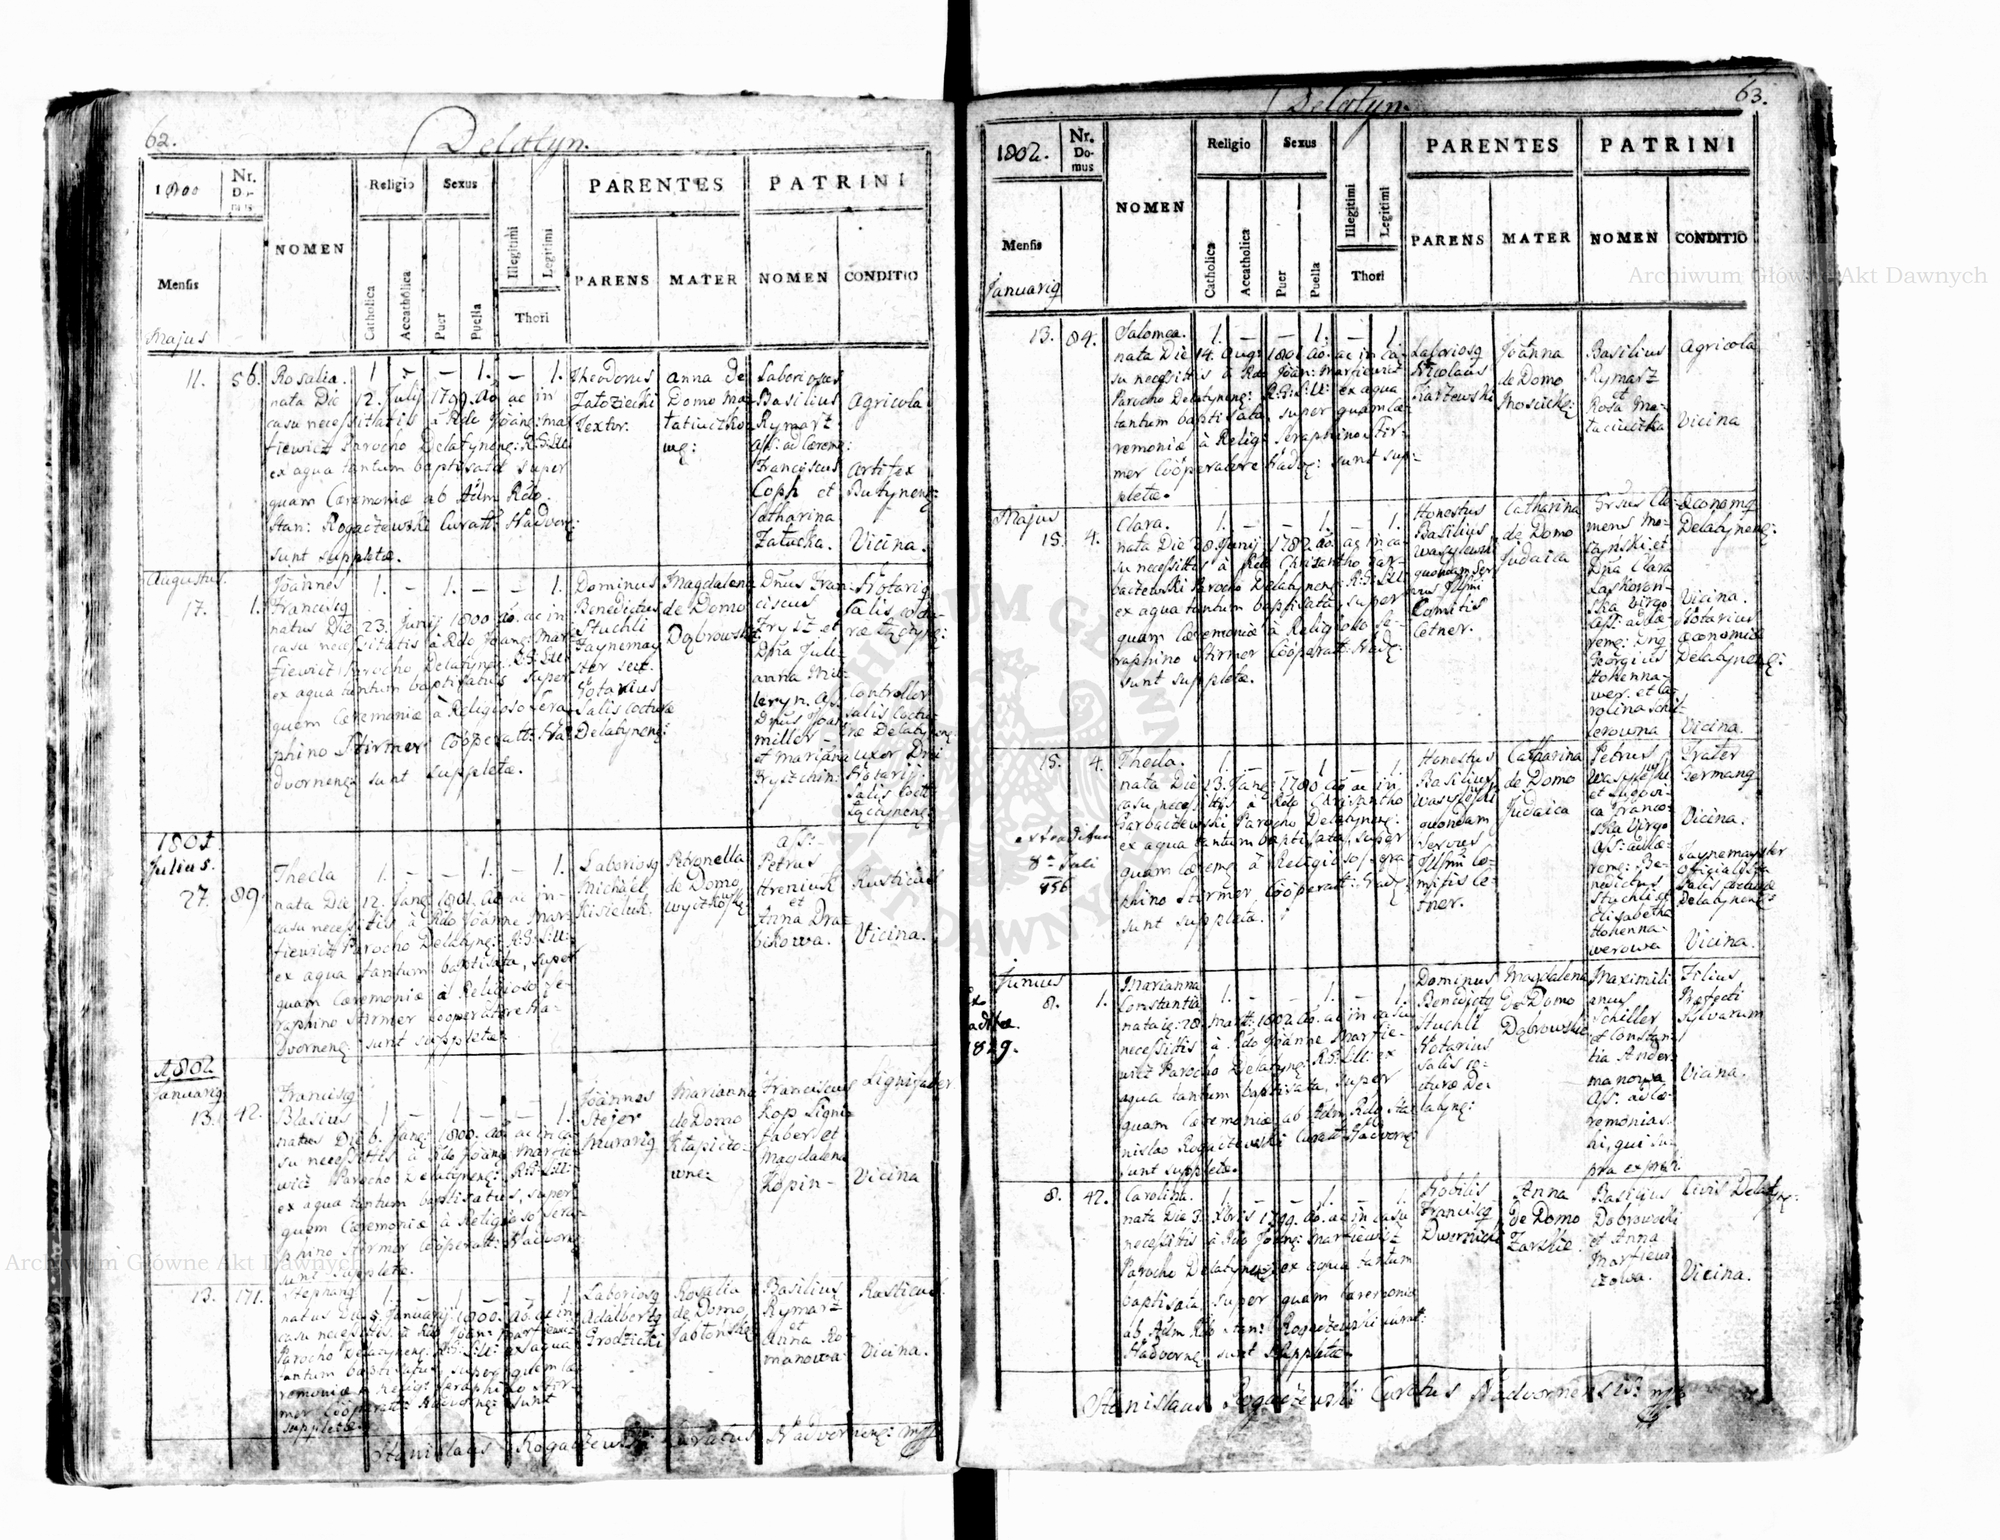 62.
Delatyn.
1800
Nr. Domus
NOMEN
Religio
Sexus
PARENTES
PATRINI
Mensis
Catholica
Accatholica
Puer
Puella
Illegitimi
Legitimi
Thori
PARENS
MATER
NOMEN
CONDITIO
Majus
11. 56. Rosalia. 1 – – 1. – 1.
nata Die 12. Julij 1799. ao ac in
casu necessitatis à Rdo Joane: Mar
tiewicz Parocho Delatynenq: R: G: Lit:
ex aqua tantum baptisata super
quam Caeremoniae ab Adm Rdo.
Stan: Rogaczewski Curatt: Nadvorq:
sunt suppletae.
Theodorus
Textor.
Anna de
Domo Ma
Laboriosus
Basilius
Rymarz
ass: ad Caerem:
Franciscus
Coph et
Catharina
Zatucka.
Agricola
Artifex
Butynenq:
Vicina.
Augustus.
17. 1. Joannes 1. – 1. – – 1.
Francisq
natus Die 23. Junij 1800. ao. ac in
casu necessitatis à Rdo Joane: Mar
tiewicz Parocho Delatynenq: R: G: Lit:
ex aqua tantum baptisatus super
quem Caeremoniae à Religioso Sera
phino Stirmer Cooperatt: Na
dvornenq sunt suppletae.
Dominus
Benedictus
Stuchli
Notarius
Salis Cocturae
Delatynenq:
Magdalena
de Domo
Dąbrowska
Dnus Fran
ciscus
et
Dna Juli
anna Mil
leryn. ass.
Dnus Joan
Miller
et Mariana
Notariq
Salis coctu
rae
Controller
Salis Coctu
rae Delatynenq:
uxor Dni
Notarij
Salis Coctt
1801
Julius.
27. 89. Thecla 1. – – 1. – 1.
nata Die 12. Janq 1801. ao ac in
casu necessitis à Rdo Joanne Mar
tiewicz Parocho Delatynq: R: G: Lit:
ex aqua tantum baptisata, super
quam Caeremoniae à Religioso Se
raphino Stirmer cooperatore Na
dvornenq: sunt suppletae.
Laboriosq
Michael
Kisieluk.
Petronella
de Domo
ass:
Petrus
Hreniuk
et
Anna Dra
bikowa.
Rusticus
Vicina.
1802.
Januariq
13. 42. Francisq
Blasius 1. – 1. – – 1.
natus Die 6. Janq: 1800. ao. ac in ca
su necessittis à Rdo Joanq Martie
wicz Parocho Delatynenq: R: G: Lit:
ex aqua tantum baptisatus, super
quem Caeremoniae à Religioso Sera
phino Stirmer Cooperatt: Nadvornq
sunt suppletae.
Joannes
Stejer
Murariq
Marianna
de Domo
Franciscus
Kop Ligni
faber et
Magdalena
Kopin
Lignifaber
Vicina
13. 171. Stephanq 1. – 1. – – 1.
natus Die 5. Januarij 1800. ao. ac in
casu necessitis à Rdo Joan: Martiewicz
Parocho Delatynenq: R: G: Lit: ex aqua
tantum baptisatus super quem Cae
remoniae à Religq Seraphino Stir
mer Cooperatt: Nadvornq: sunt
suppletae.
Laboriosq
Adalbertq
Grodzicki
Rosalia
de Domo
Jabłońska
Basilius
Rymarz
et
Anna Ro
manowa
Rusticus.
Vicina.
Stanislaus Rogaczewski Curatus Nadvornenq: mp
63.
Delatyn.
1802.
Nr. Domus
NOMEN
Religio
Sexus
PARENTES
PATRINI
Mensis
Catholica
Accatholica
Puer
Puella
Illegitimi
Legitimi
Thori
PARENS
MATER
NOMEN
CONDITIO
Januariq
13. 84. Salomea. 1. – – 1. – 1.
nata Die 14. Aug: 1801. ao. ac in ca
su necessittis à Rdo Joan: Martiewicz
Parocho Delatynenq: R: G: Lit: ex aqua
tantum baptisata, super quam Cae
remoniae à Religq Seraphino Stir
mer Cooperatore Nadvq: sunt sup
pletae.
Laboriosq
Nicolaus
Joanna
de Domo
Basilius
Rymarz
et
Rosa Ma
Agricola
Vicina
Majus
15. 4. Clara. 1. – – 1. – 1.
nata Die 28. Junij 1782. ao. ac in ca
su necessittis à Rdo Chrisantho Bar
baczewski Parocho Delatynenq: R: G: Lit:
ex aqua tantum baptisata, super
quam Caeremoniae à Religioso Se
raphino Stirmer Cooperatt: Nadvq:
sunt suppletae.
Honestus
Basilius
quondam Ser
vus Illmi
Comitis
Cetner.
Catharina
de Domo
Judaica
Dnus Cle
mens
et
Dna Clara
virgo
ass: ad Cae
remq:
Georgius
Hohenna
wer. et Ca
rolina Schil
lerowna
Oeconomq
Delatynenq:
Vicina.
Notarius
Oeconomiae
Delatynenq:
Vicina.
15. 4. Thecla. 1. – – 1. – 1.
nata Die 13. Janq: 1780 ao ac in
casu necessittis à Rdo Chrisantho
Barbaczewski Parocho Delatynenq:
ex aqua tantum baptisata, super
quam Caeremq à Religioso Sera
phino Stirmer Cooperatt: Nadvq:
sunt suppletae.
extraditum
8a Juli
856
Honestus
Basilius
quondam
Servus
Illmi Co
mitis Ce
tner.
Catharina
de Domo
Judaica
Petrus
et
virgo
ass: ad Cae
remq: Be
nedictus
Stuchli et
Elisabetha
Hohenna
werowa
Frater
Germanq
Vicina.
Salis
Delatynenq
Vicina.
Junius
8. 1. Marianna
Constantia 1. – – 1. – 1.
nata iq: 28. Martt: 1802. ao. ac in casu
necessittis à Rdo Joanne Martie
wicz Parocho Delatynq: R: G: Lit: ex
aqua tantum baptisata, super
quam Caeremoniae ab Adm Rdo Sta
nislao Rogaczewski Curatt: Nadvornq
sunt suppletae.
1829.
Dominus
Benedictq
Stuchli
Notarius
Salis co
cturae De
latynq:
Magdalena
de Domo
Dąbrowska
Maximili
anus
Schiller
et Constan
tia Ander
manowa
ass: ad Cae
remonias.
hi, qui su
pra
Filius
Praefecti
Sylvarum
Vicina.
8. 42. Carolina. 1. – – 1. – 1.
nata Die 3. Xbris 1799. ao. ac in casu
necessittis à Rdo Joanq: Martiewicz
Parocho Delatynenq ex aqua tantum
baptisata, super quam Caeremonia
ab Adm Rdo Stan: Rogaczewski Curatt:
Nadvornq sunt suppletae.
Nobilis
Francisq
Dwernicki
Anna
de Domo
Basilius
Dobrowolski
et Anna
Martiewi
czowa.
Civis Delatynq:
Vicina.
Stanislaus Rogaczewski Curatus Nadvornensis mp
Archiwum Główne Akt Dawnych
Archiwum Główne Akt Dawnych
ARCHIWUM GŁÓWNE AKT DAWNYCH